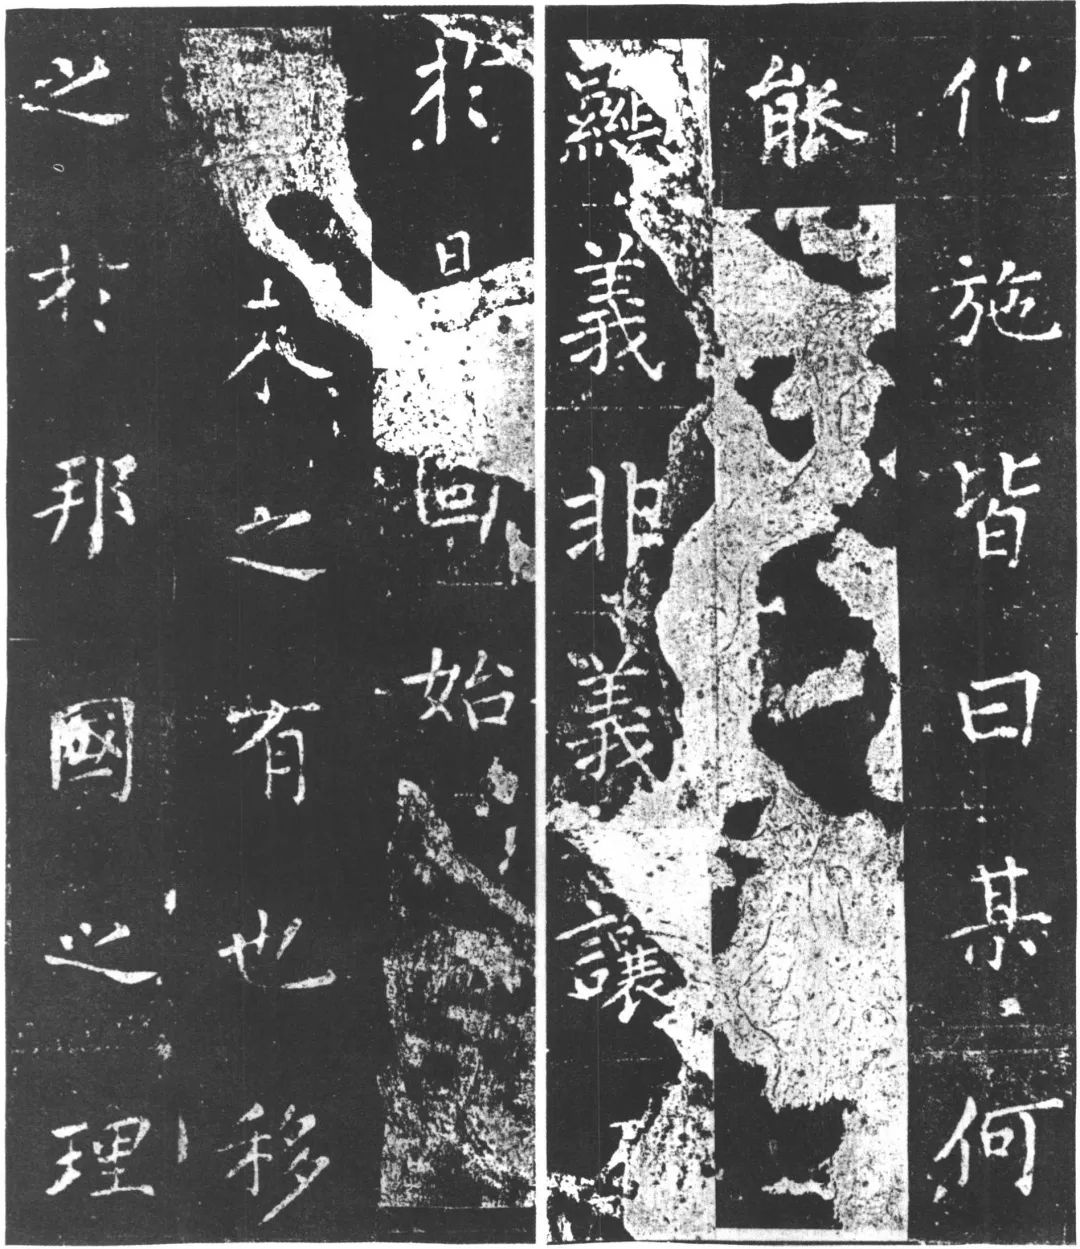 化施皆曰某何
能
繇義非義讓
於日回始
夫之有也移
之於邦國之理